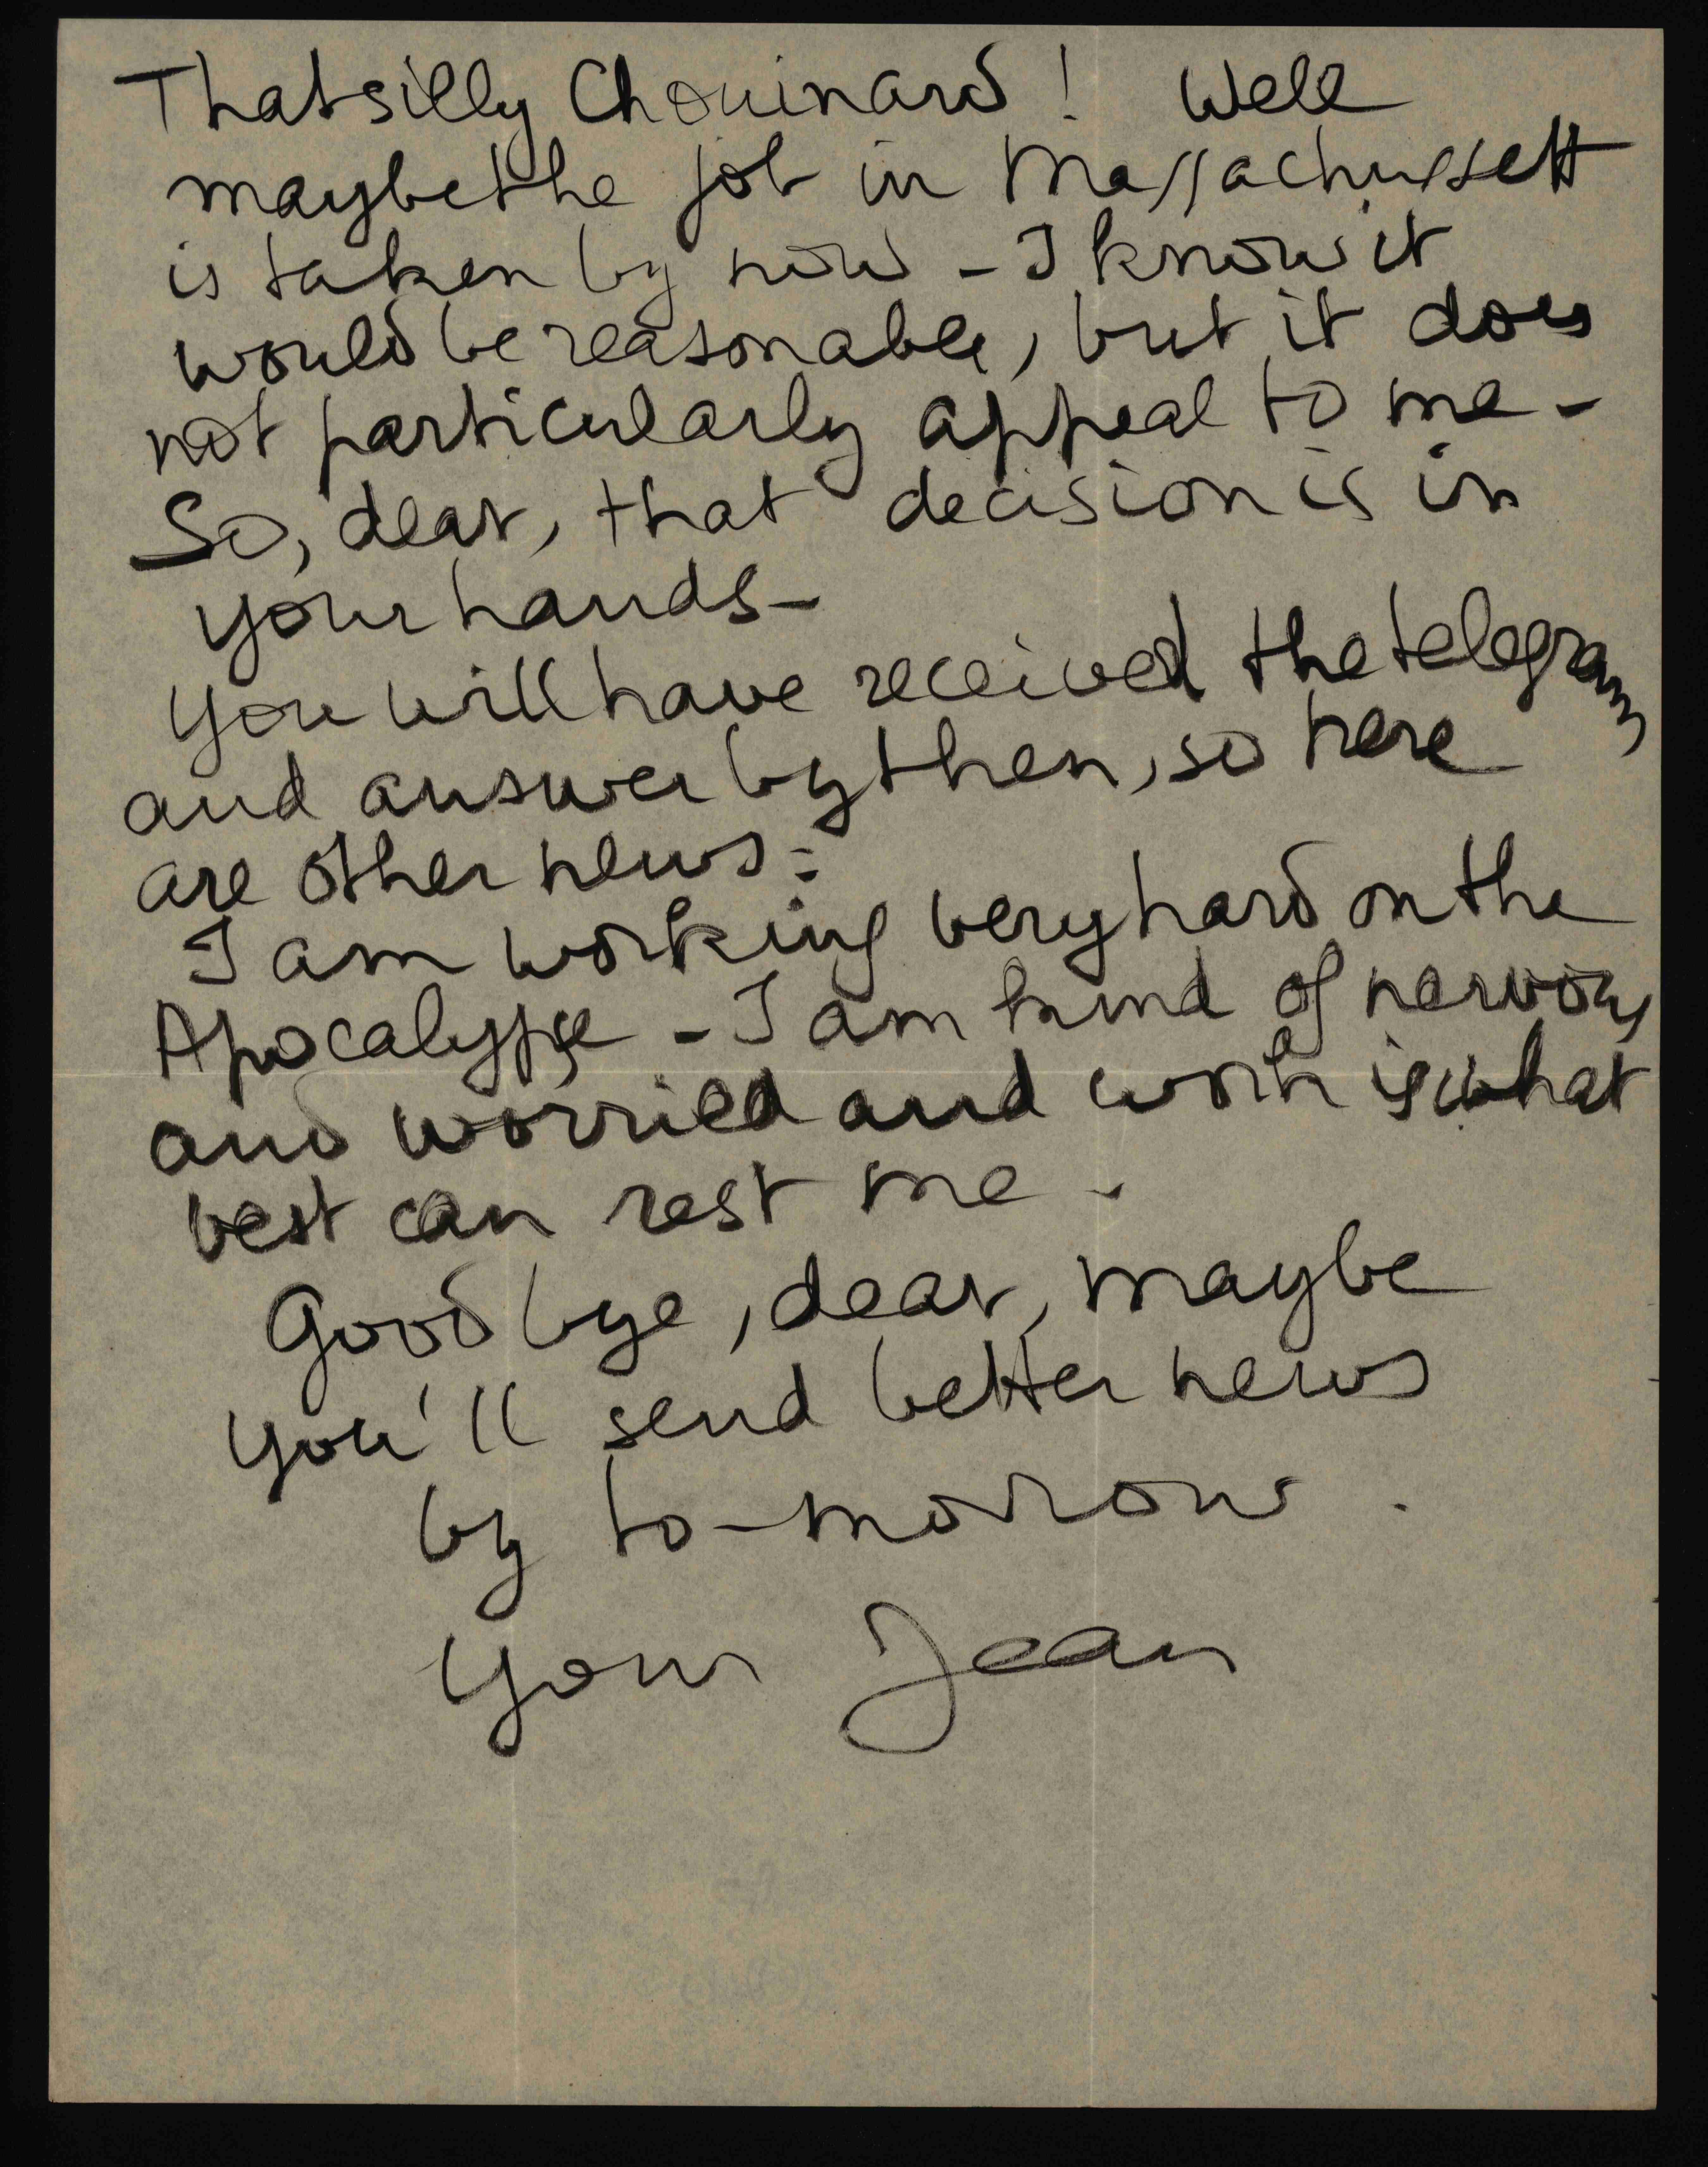 That silly Chouinard! Well
maybe the job in Massachussett
is taken by now - I know it
would be reasonable, but it does
not particularly appeal to me -
So, dear, that decision is in
your hands -
You will have received the telegram
and answer by then, so here
are other news:
I am working very hard on the
Apocalypse - I am kind of nervous
and worried and work is what
best can rest me -
Good bye, dear, maybe
you'll send better news
by to-morrow.
Your Jean